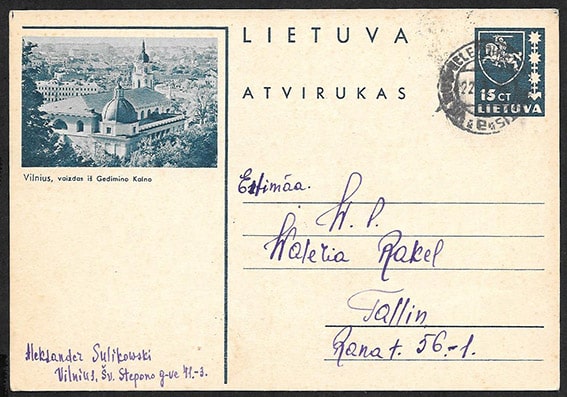 LIETUVA
ATVIRUKAS
15 CT
LIETUVA
Vilnius, vaizdas iš Gedimino Kalno
Estimãa.
W. P.
Waleria Rakel
Tallin
Rana t. 56-1.
Aleksander Sulikowski
Vilnius, Šv. Stepono g-ve 41-3.